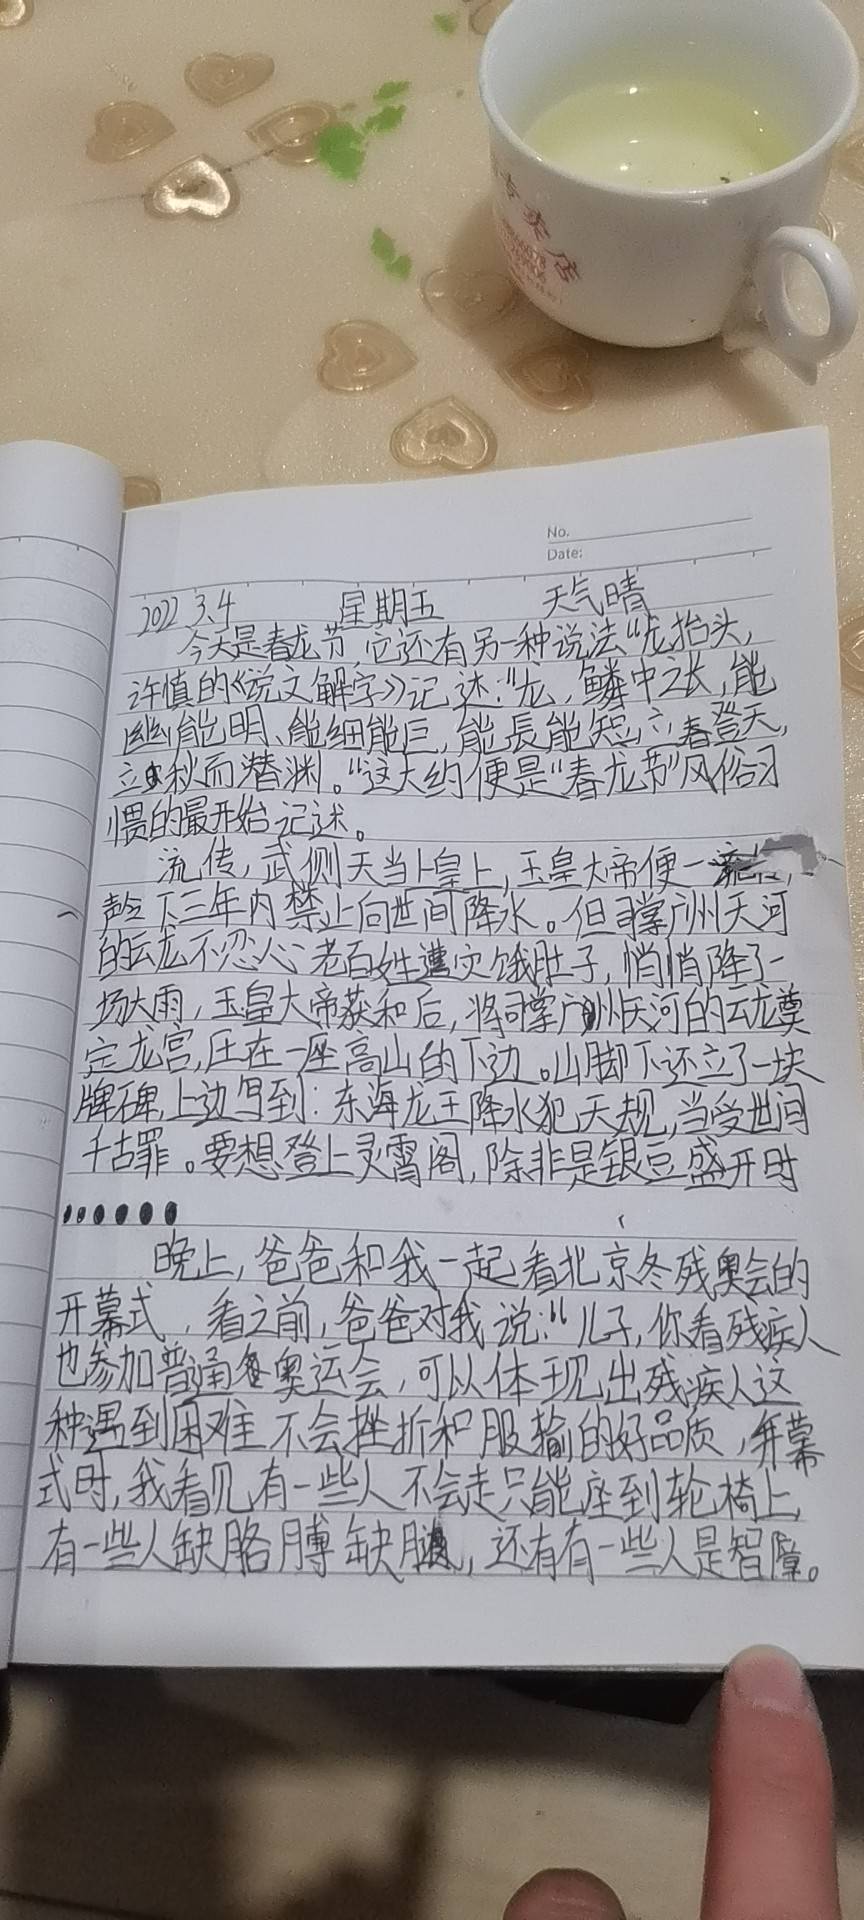 专卖店
No.
Date:
2022 3.4 星期五 天气晴
今天是春龙节,它还有另一种说法“龙抬头,
许慎的《说文解字》记述:“龙,鳞中之长,能
幽能明、能细能巨,能長能短,立春登天,
立秋而潜渊。“这大约便是“春龙节”风俗习
惯的最开始记述。
流传,武侧天当上皇上,玉皇大帝便一
下三年内禁止向世间降水。但司掌广州天河
的云龙不忍心老百姓遭灾饿肚子,悄悄降了一
场大雨,玉皇大帝获和后,将司掌广州天河的云龙奠
定龙宫,压在一座高山的下边。山脚下还立了一块
牌碑,上边写到:东海龙王降水犯天规,当受世间
千古罪。要想登上灵霄阁,除非是银豆盛开时
……
晚上,爸爸和我一起看北京冬残奥会的
开幕式,看之前,爸爸对我说:“儿子,你看残疾人
也参加普通冬奥运会,可以体现出残疾人这
种遇到困难不会挫折和服输的好品质,开幕
式时,我看见有一些人不会走只能座到轮椅上,
有一些人缺胳膊缺腿,还有有一些人是智障。